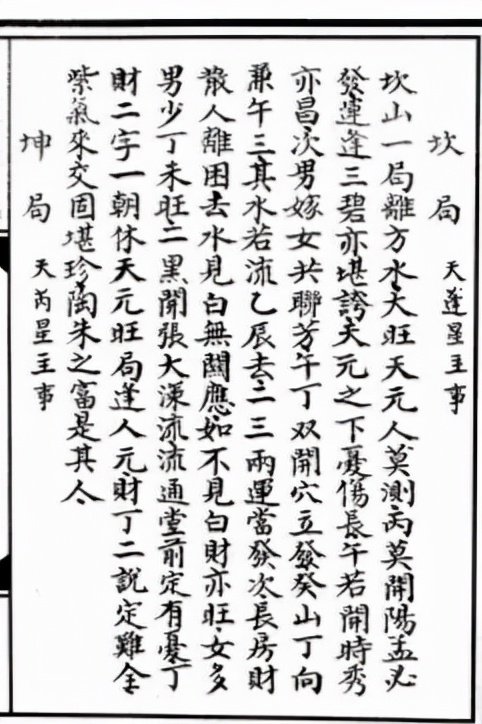 坎局 天蓬星主事
坎山一局離方水大旺天元人莫測丙莫開陽盂必
發運逢三碧亦堪誇天元之下憂傷長午若開時秀
亦昌次男嫁女共聯芳午丁双開穴立發癸山丁向
兼午三其水若流乙辰去二三兩運當發次長房財
散人離困去水見白無關應如不見白財亦旺女多
男少丁未旺二黑開張大溁流流通堂前定有憂丁
財二字一朝休天元旺局逢人元財丁二說定難全
紫氣來交固堪珍陶朱之富是其人
坤局 天芮星主事